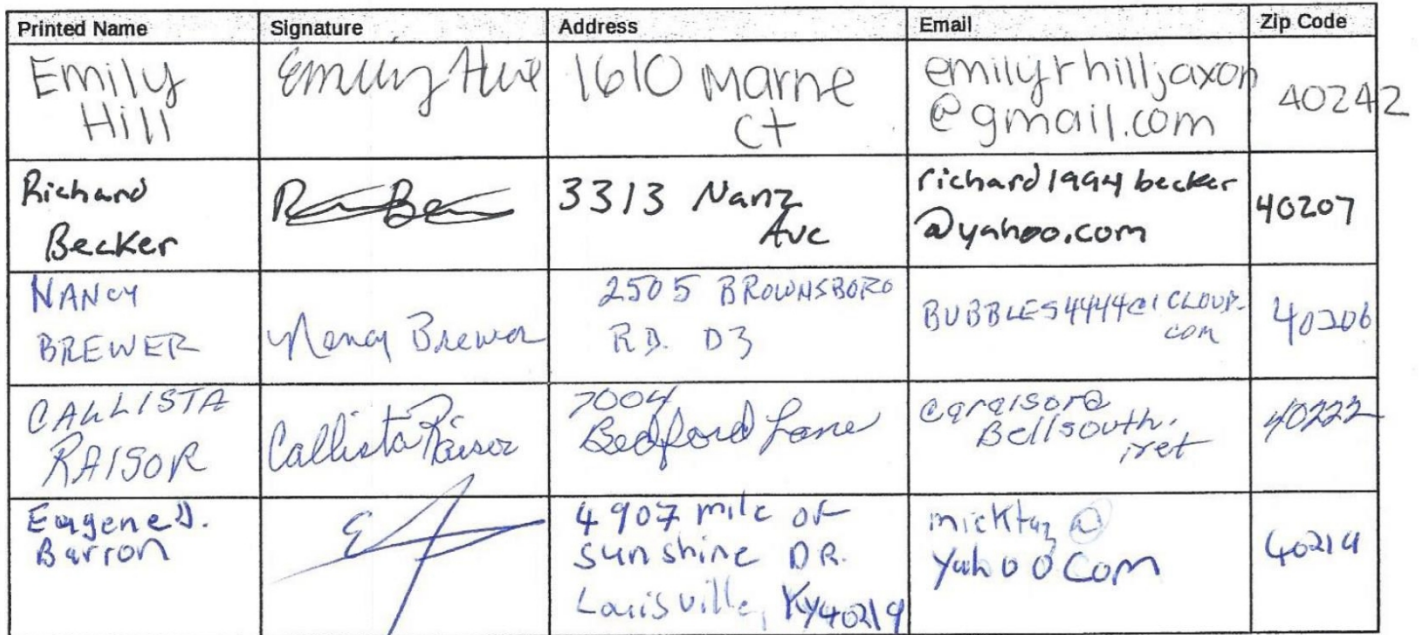 Printed Name Signature Address Email Zip Code
Emily
Hill
Emily Hill
1610 Marne
Ct
emilyrhilljaxon
@gmail.com
40242
Richard
Becker
3313 Nanz
Ave
richard1994becker
@yahoo.com
40207
NANCY
BREWER
Nancy Brewer
2505 BROWNSBORO
RD. D3
BUBBLES4444@ICLOUD.
com
40206
CALLISTA
RAISOR
Callista Raisor
7004
Bedford Lane
caraisor@
Bellsouth.
net
40222
Eugene D.
Barron
4907 mile of
sunshine DR.
Louisville, KY 40219
micktaz@
Yahoo Com
40219